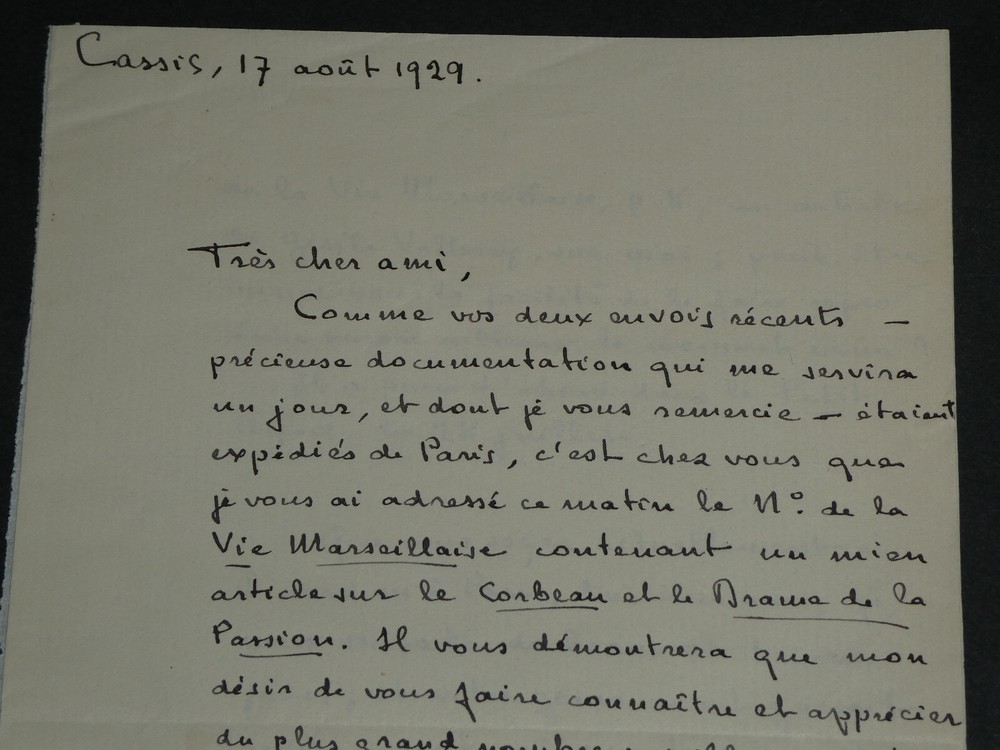 Cassis, 17 août 1929.
Très cher ami,
Comme vos deux envois récents —
précieuse documentation qui me servira
un jour, et dont je vous remercie — étaient
expédiés de Paris, c'est chez vous que
je vous ai adressé ce matin le N° de la
Vie Marseillaise contenant un mien
article sur le Corbeau et le Drame de la
Passion. Il vous démontrera que mon
désir de vous faire connaître et apprécier
du plus grand nombre